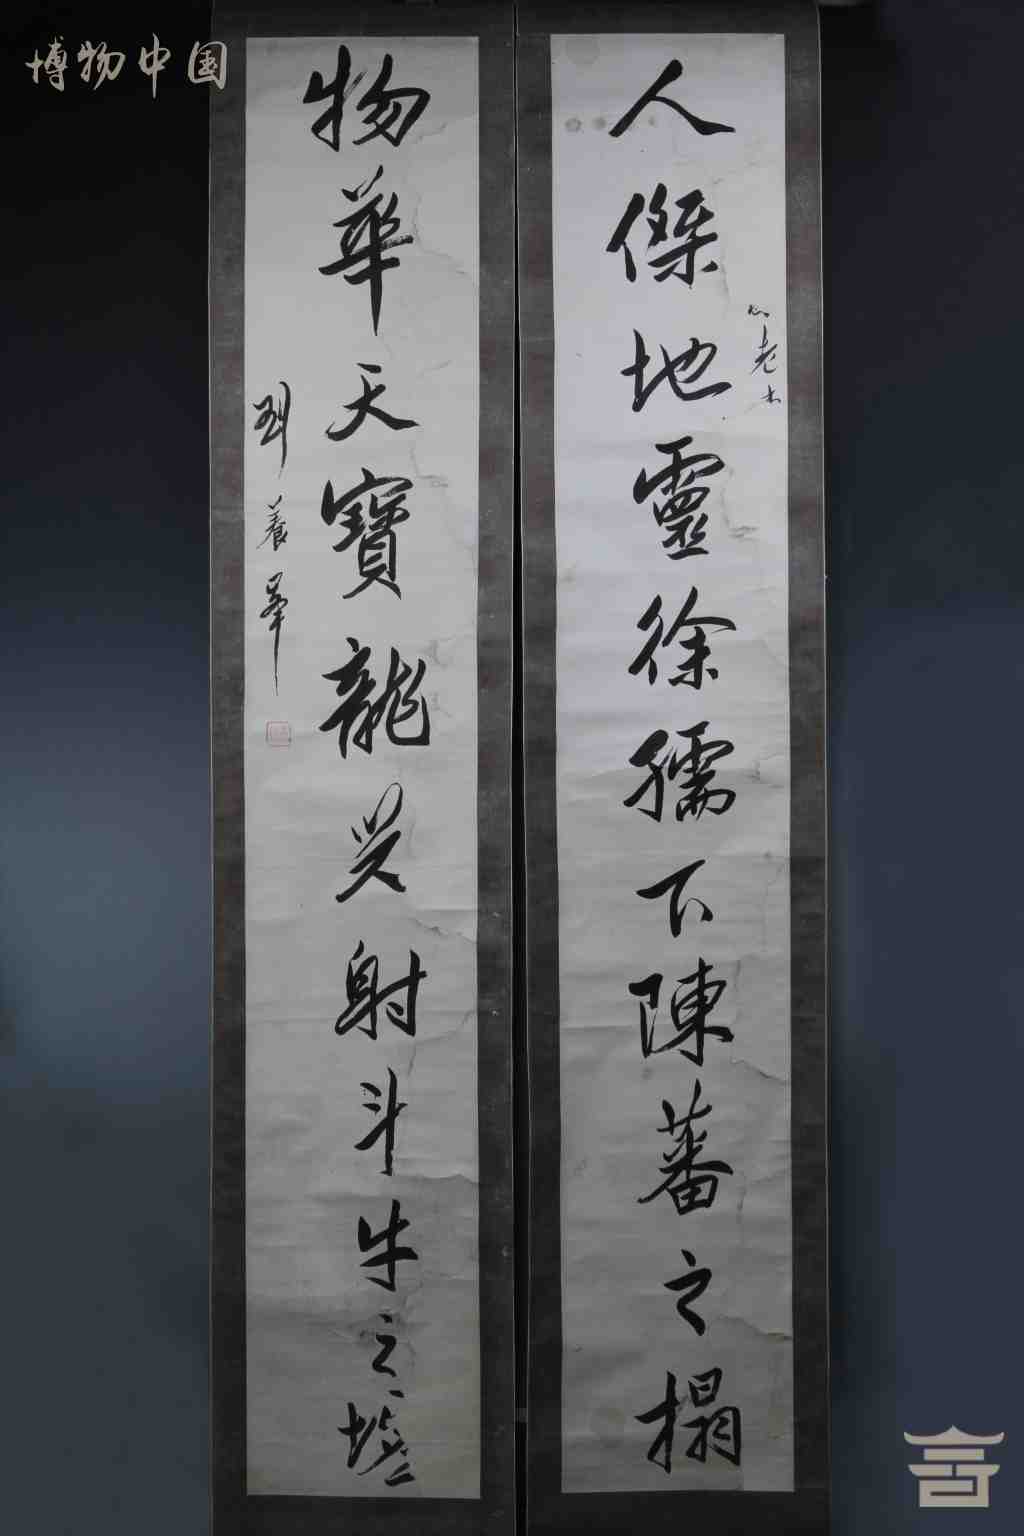 博物中国
人傑地靈徐孺下陳蕃之榻
物華天寶龍光射斗牛之墟
劉養